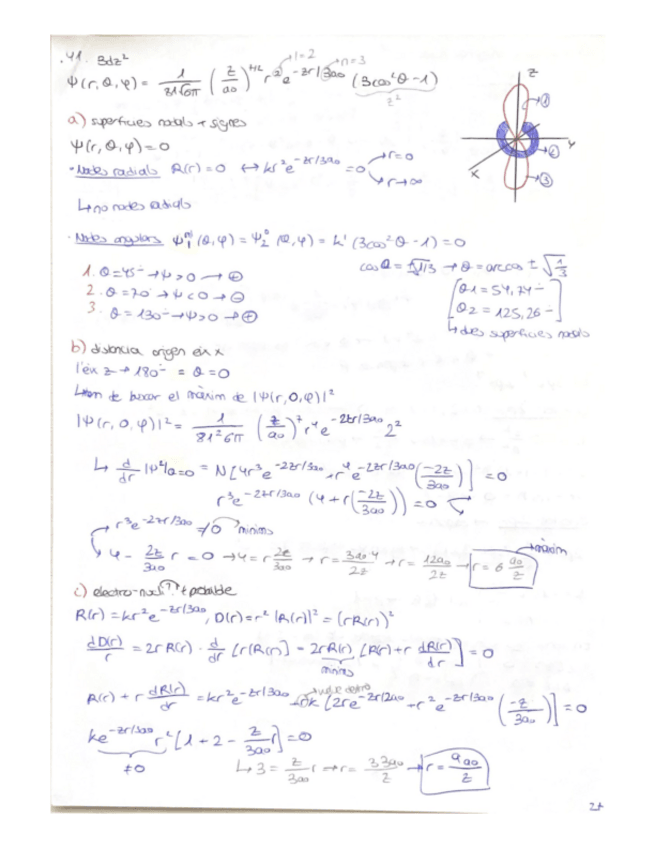 41. 3dz²
l=2 n=3
Ψ(r,θ,φ) = 1/81√6π (z/a₀)^7/2 r² e^-zr/3a₀ (3cos²θ-1)
z²
a) superfícies nodals + signes
Ψ(r,θ,φ)=0
· Nodes radials R(r)=0 ↔ kr²e^-zr/3a₀ =0 → r=0
→ r→∞
↳ no nodes radials
z
y
x
1
2
3
· Nodes angulars Ψ(θ,φ) = Ψ₂⁰(θ,φ) = k'(3cos²θ-1)=0
cosθ = ±√1/3 → θ = arccos ±√1/3
1. θ=45º → Ψ>0 → ⊕
2. θ=70º → Ψ<0 → ⊖
3. θ=130º → Ψ>0 → ⊕
[θ1 = 54,74º
θ2 = 125,26º]
↳ dues superfícies nodals
b) distància origen eix
l'eix z → 180º = θ=0
↳ hem de buscar el màxim de |Ψ(r,0,φ)|²
|Ψ(r,0,φ)|² = 1/81²6π (z/a₀)^7 r⁴ e^-2zr/3a₀ 2²
↳ d/dr |Ψ|²θ=0 = N[4r³e^-2zr/3a₀ + r⁴e^-2zr/3a₀ (-2z/3a₀)] = 0
r³e^-2zr/3a₀ (4 + r(-2z/3a₀)) = 0
r³e^-2zr/3a₀ ≠ 0 → mínims
4 - 2z/3a₀ r = 0 → 4 = r 2z/3a₀ → r = 3a₀·4/2z → r = 12a₀/2z → r = 6 a₀/z → màxim
c) electró-nucli ?? + probable
R(r) = kr²e^-zr/3a₀, D(r) = r²|R(r)|² = (rR(r))²
dD(r)/r = 2rR(r) · d/dr [r(R(r)] = 2rR(r) [R(r)+r dR(r)/dr] = 0
mínims
R(r) + r dR(r)/dr = kr²e^-zr/3a₀ + rk [2re^-zr/3a₀ + r²e^-zr/3a₀ (-z/3a₀)] = 0
ke^-zr/3a₀ r² [1+2 - z/3a₀ r] = 0
≠0
↳ 3 = z/3a₀ r → r = 3·3a₀/z → r = 9a₀/z